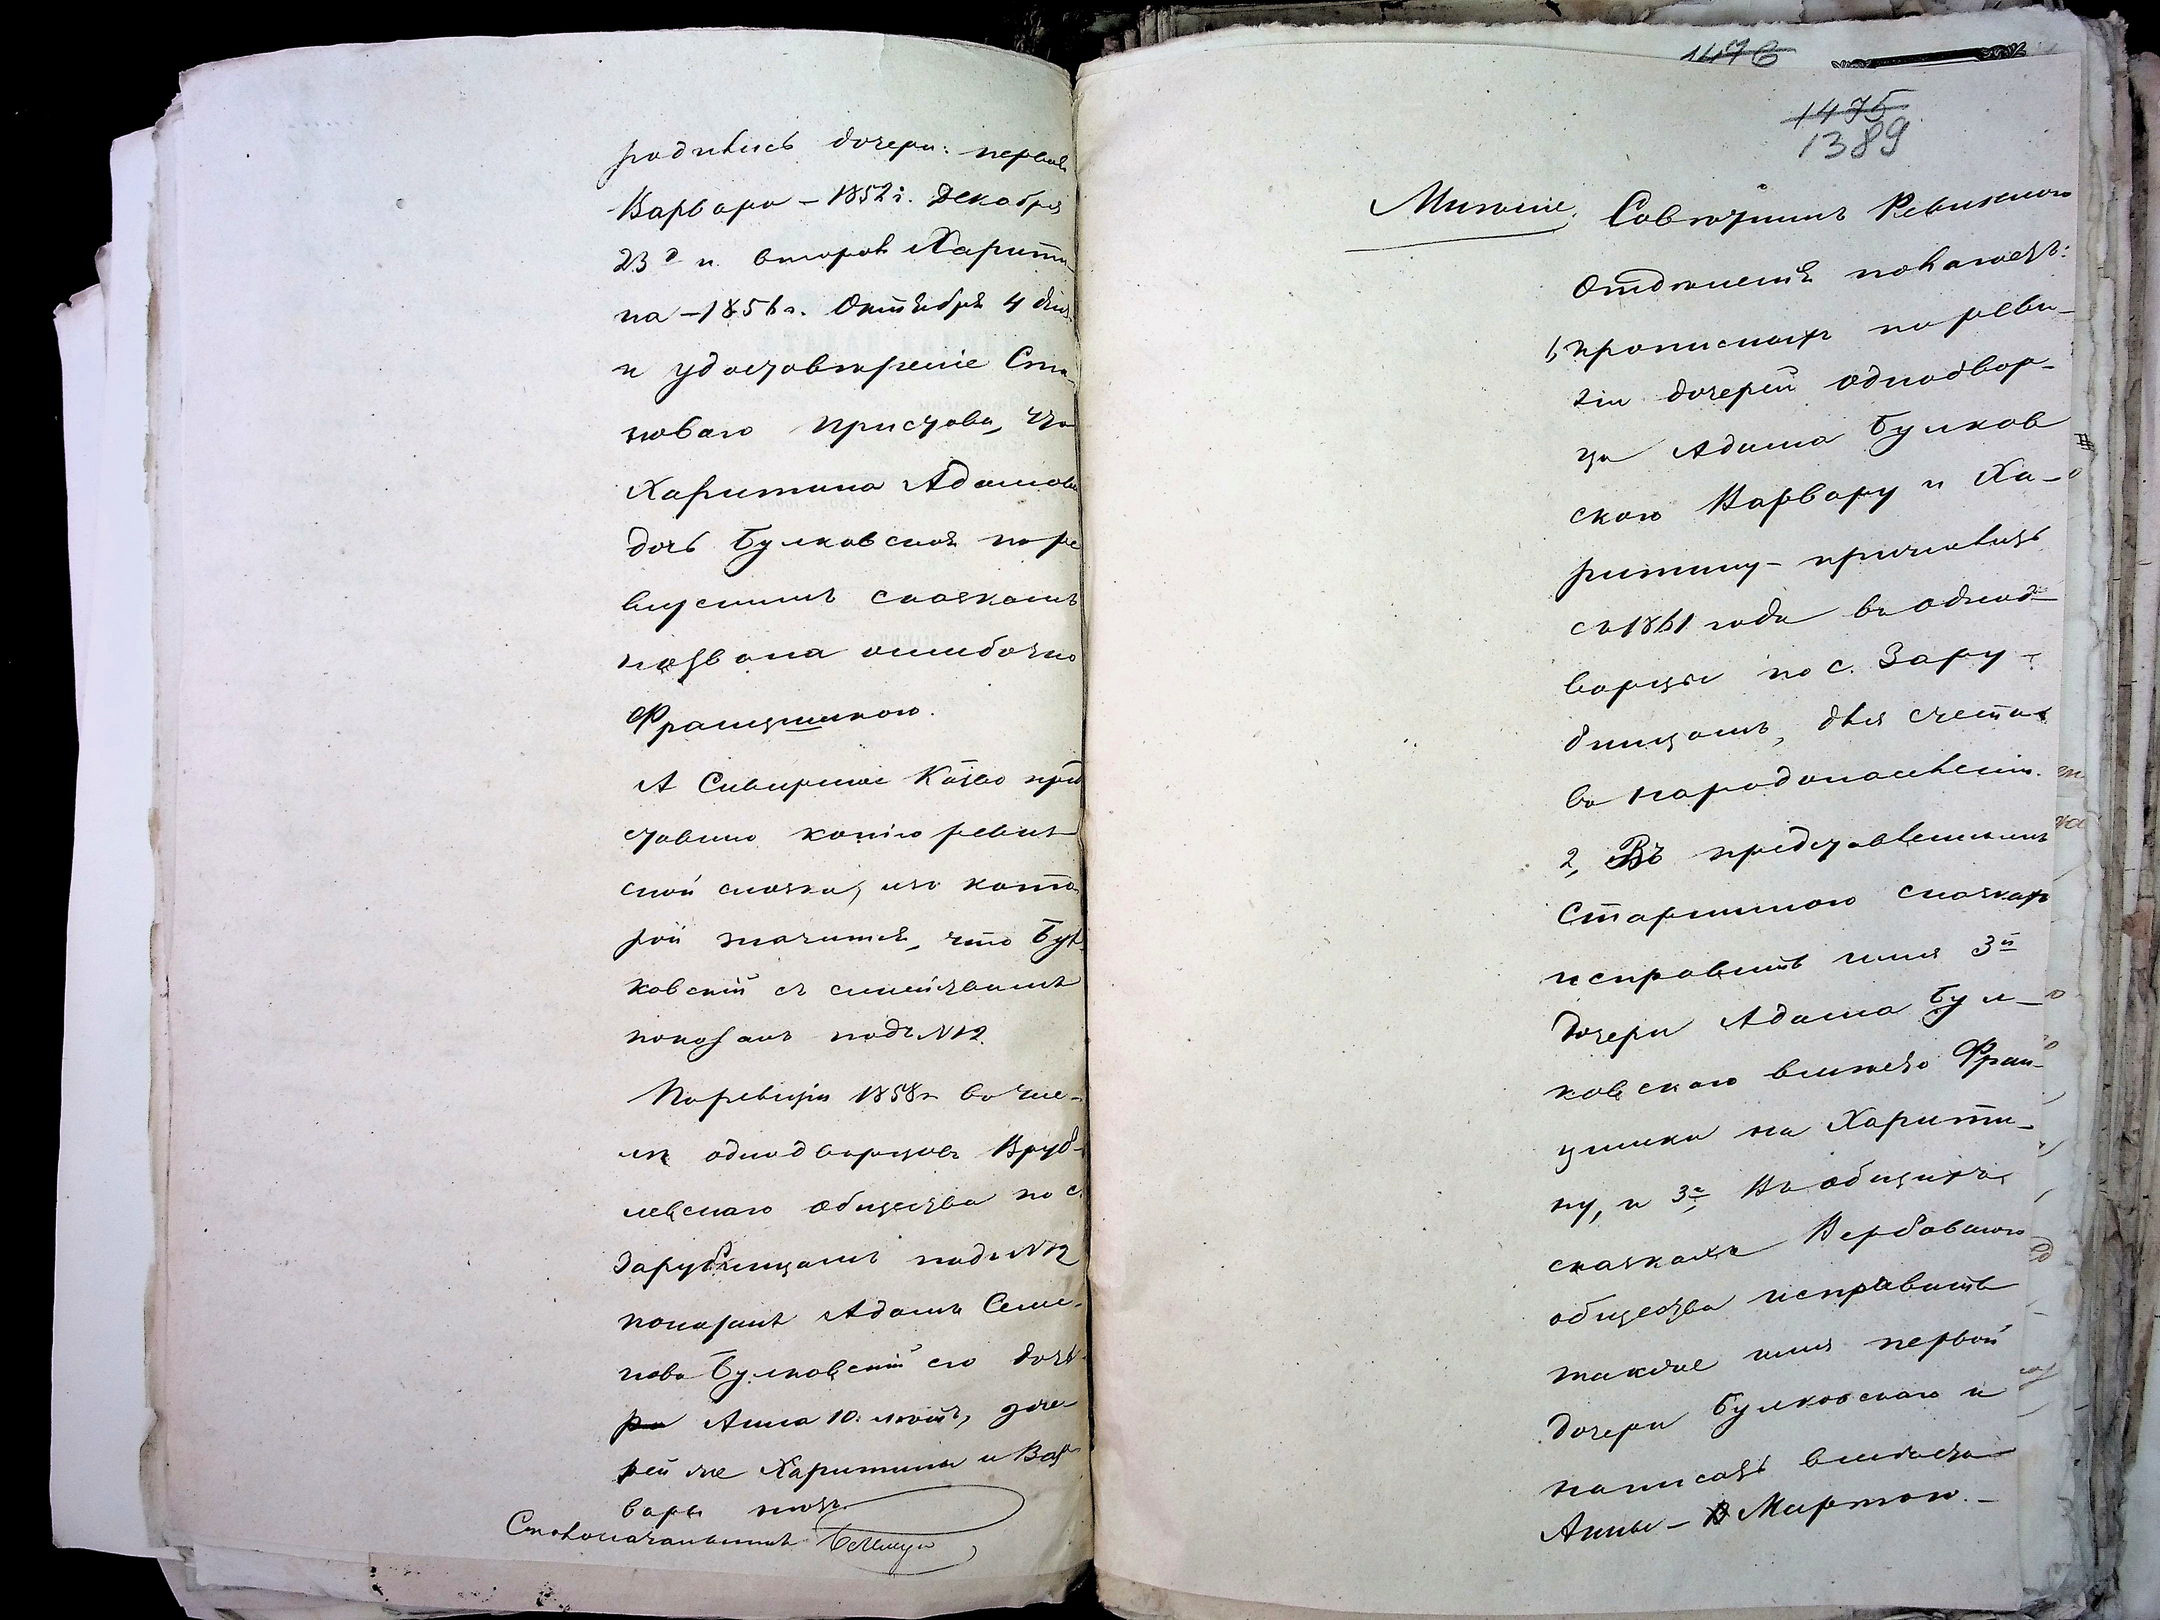 родились дочери: первая
Варвара – 1852 г. Декабря
23 д и вторая Харити-
на – 1856 г. Октября 4 дня
и удостовѣреніе Ста-
новаго Пристава, что
Харитина Адамова
дочь Булковская по ре
визскимъ сказкамъ
названа ошибочно
Францишкою.
А Сквирское Казнo пред
ставило копію ревиз
ской сказки, изъ кото
рой значится, что Бул
ковскій съ семействомъ
показанъ подъ № 12.
По ревизіи 1858 г въ чис-
лѣ однодворцевъ Вруб-
левскаго общества по с.
Зарубинцамъ подъ № 12
показанъ Адамъ Семе-
новъ Булковскій его дочь
ри Анна 10. лѣтъ, доче
рей же Харитины и Вар
вары нѣтъ.
Столоначальникъ
1476
1475
1389
Мнѣніе. Совѣтникъ Ревизскаго
Отдѣленія полагаетъ:
1, прописныхъ по реви-
зіи дочерей однодвор-
ца Адама Булков
скаго Варвару и Ха-
ритину – причислить
съ 1861 года въ однод-
ворцы по с. Зару-
бинцамъ, для счета
въ народонаселеніи.
2, Въ представленныхъ
Старшиною сказкахъ
исправить имя 3й
дочери Адама Бул-
ковскаго вмѣсто Фран-
цишки на Харити-
ну, и 3е, Въ общихъ
сказкахъ Вербоваго
общества исправить
также имя первой
дочери Булковскаго и
написать вмѣсто
Анны – Мартою. –